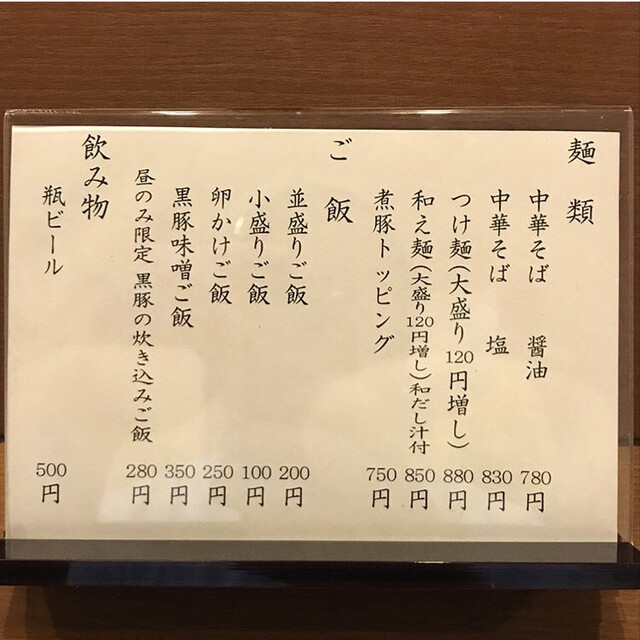 麺類
中華そば 醤油 780円
中華そば 塩 830円
つけ麺(大盛り120円増し) 880円
和え麺(大盛り120円増し)和だし汁付 850円
煮豚トッピング 750円
ご飯
並盛りご飯 200円
小盛りご飯 100円
卵かけご飯 250円
黒豚味噌ご飯 350円
昼のみ限定 黒豚の炊き込みご飯 280円
飲み物
瓶ビール 500円